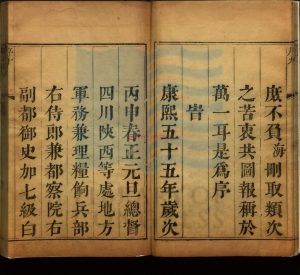 庶不負海剛取類次
之苦衷共圖報稱於
萬一耳是爲序
旹
康熙五十五年歲次
丙申春正元旦總督
四川陝西等處地方
軍務兼理糧餉兵部
右侍郎兼都察院右
副都御史加七級白